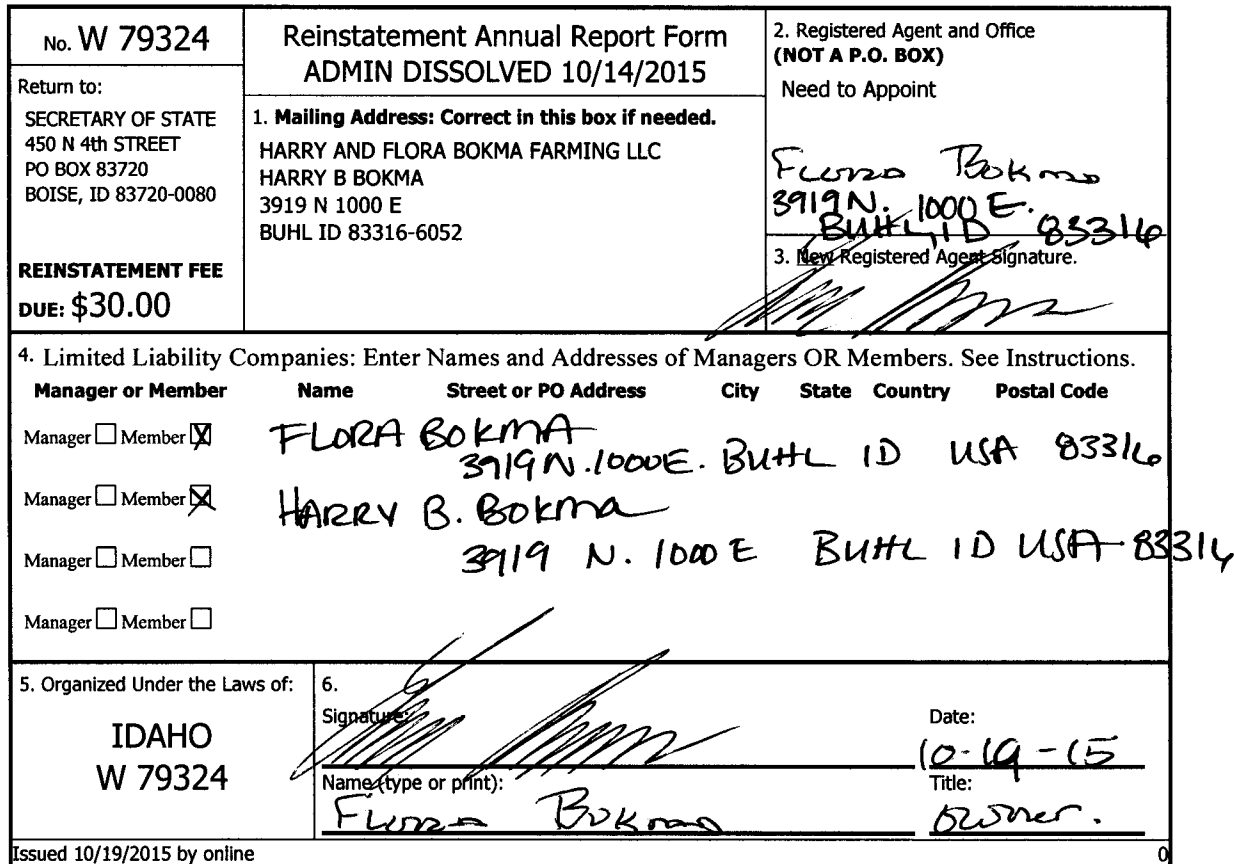 No. W 79324
Return to:
SECRETARY OF STATE
450 N 4th STREET
PO BOX 83720
BOISE, ID 83720-0080
REINSTATEMENT FEE
DUE: $30.00
Reinstatement Annual Report Form
ADMIN DISSOLVED 10/14/2015
1. Mailing Address: Correct in this box if needed.
HARRY AND FLORA BOKMA FARMING LLC
HARRY B BOKMA
3919 N 1000 E
BUHL ID 83316-6052
2. Registered Agent and Office
(NOT A P.O. BOX)
Need to Appoint
Flora Bokma
3919 N. 1000 E.
BUHL, ID 83316
3. New Registered Agent Signature.
4. Limited Liability Companies: Enter Names and Addresses of Managers OR Members. See Instructions.
Manager or Member Name Street or PO Address City State Country Postal Code
Manager Member X FLORA BOKMA
3919 N. 1000 E. BUHL ID USA 83316
Manager Member X HARRY B. Bokma
Manager Member 3919 N. 1000 E BUHL ID USA 83316
Manager Member
5. Organized Under the Laws of:
IDAHO
W 79324
6.
Signature:
Date:
10-19-15
Name (type or print):
Flora Bokma
Title:
owner.
Issued 10/19/2015 by online
0